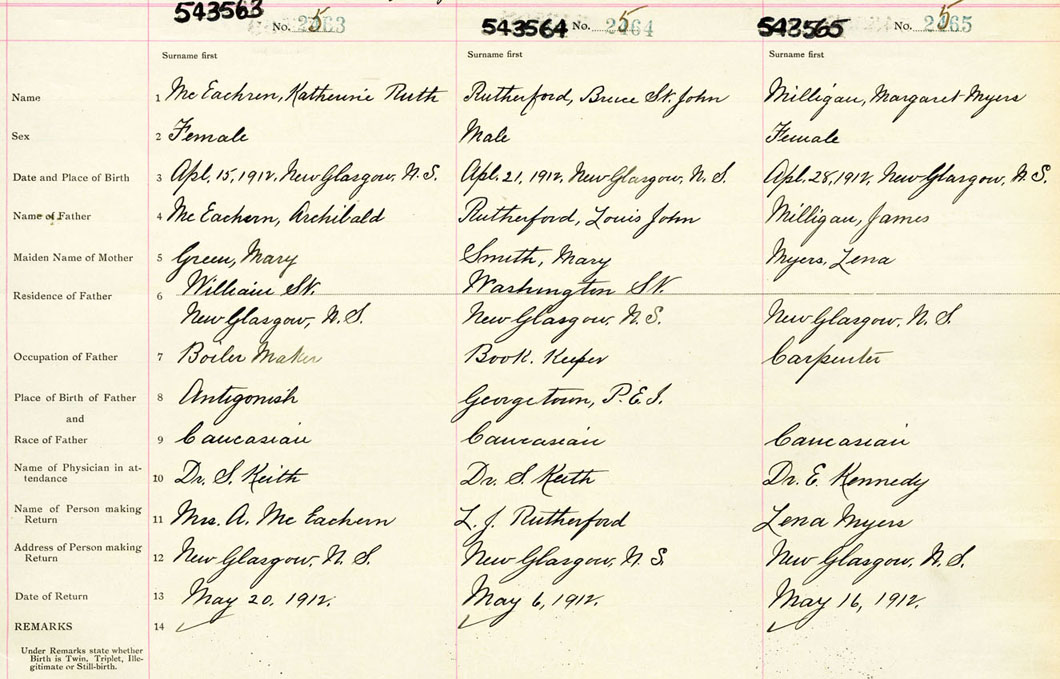 543563 No. 2563 543564 No. 2564 543565 No. 2565
Surname first Surname first Surname first
Name 1 Mc Eachren, Katherine Ruth Rutherford, Bruce St. John Milligan, Margaret Myers
Sex 2 Female Male Female
Date and Place of Birth 3 Apl. 15, 1912, New Glasgow, N.S. Apl. 21, 1912, New Glasgow, N.S. Apl. 28, 1912, New Glasgow, N.S.
Name of Father 4 Mc Eachern, Archibald Rutherford, Louis John Milligan, James
Maiden Name of Mother 5 Green, Mary Smith, Mary Myers, Lena
Residence of Father 6 William St. Washington St.
New Glasgow, N.S. New Glasgow, N.S. New Glasgow, N.S.
Occupation of Father 7 Boiler Maker Book. Keeper Carpenter
Place of Birth of Father 8 Antigonish Georgetown, P.E.I.
and
Race of Father 9 Caucasian Caucasian Caucasian
Name of Physician in at-
tendance 10 Dr. S. Keith Dr. S. Keith Dr. E. Kennedy
Name of Person making
Return 11 Mrs. A. Mc Eachern L. J. Rutherford Lena Myers
Address of Person making
Return 12 New Glasgow, N.S. New Glasgow, N.S. New Glasgow, N.S.
Date of Return 13 May 20, 1912. May 6, 1912. May 16, 1912.
REMARKS 14
Under Remarks state whether
Birth is Twin, Triplet, Ille-
gitimate or Still-birth.